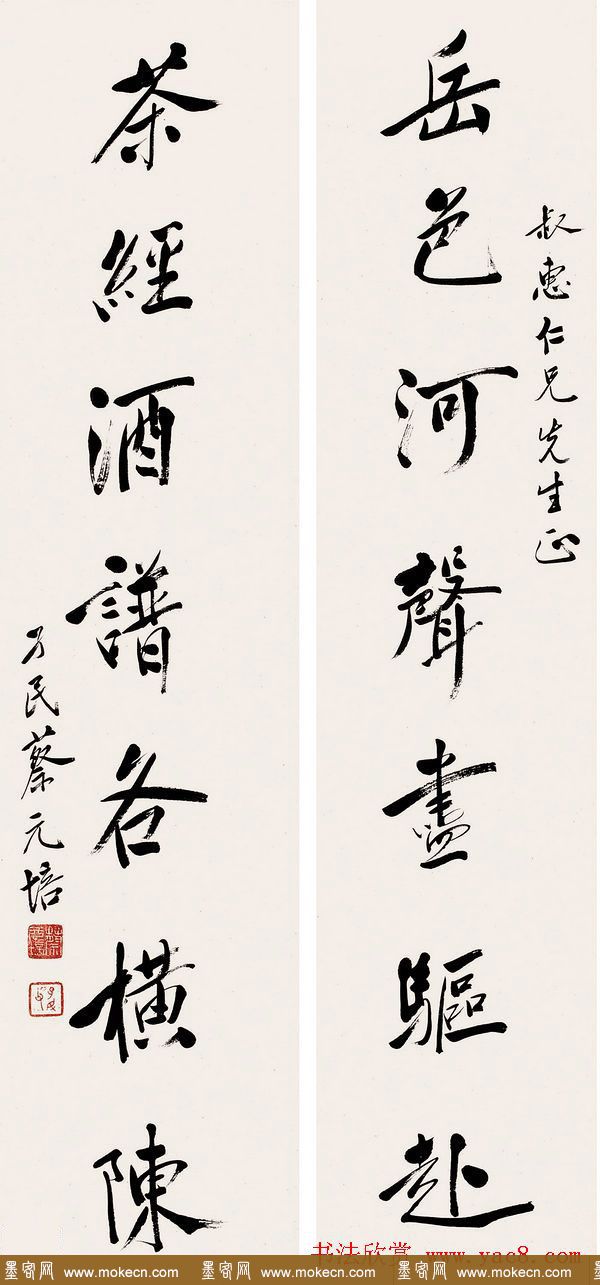 叔惠仁兄先生正
岳色河聲盡驅赴
茶經酒譜各橫陳
孑民蔡元培
书法欣赏 www.yac8.com
墨客网 www.mokecn.com 墨客网 www.mokecn.com 墨客网 www.mokecn.com